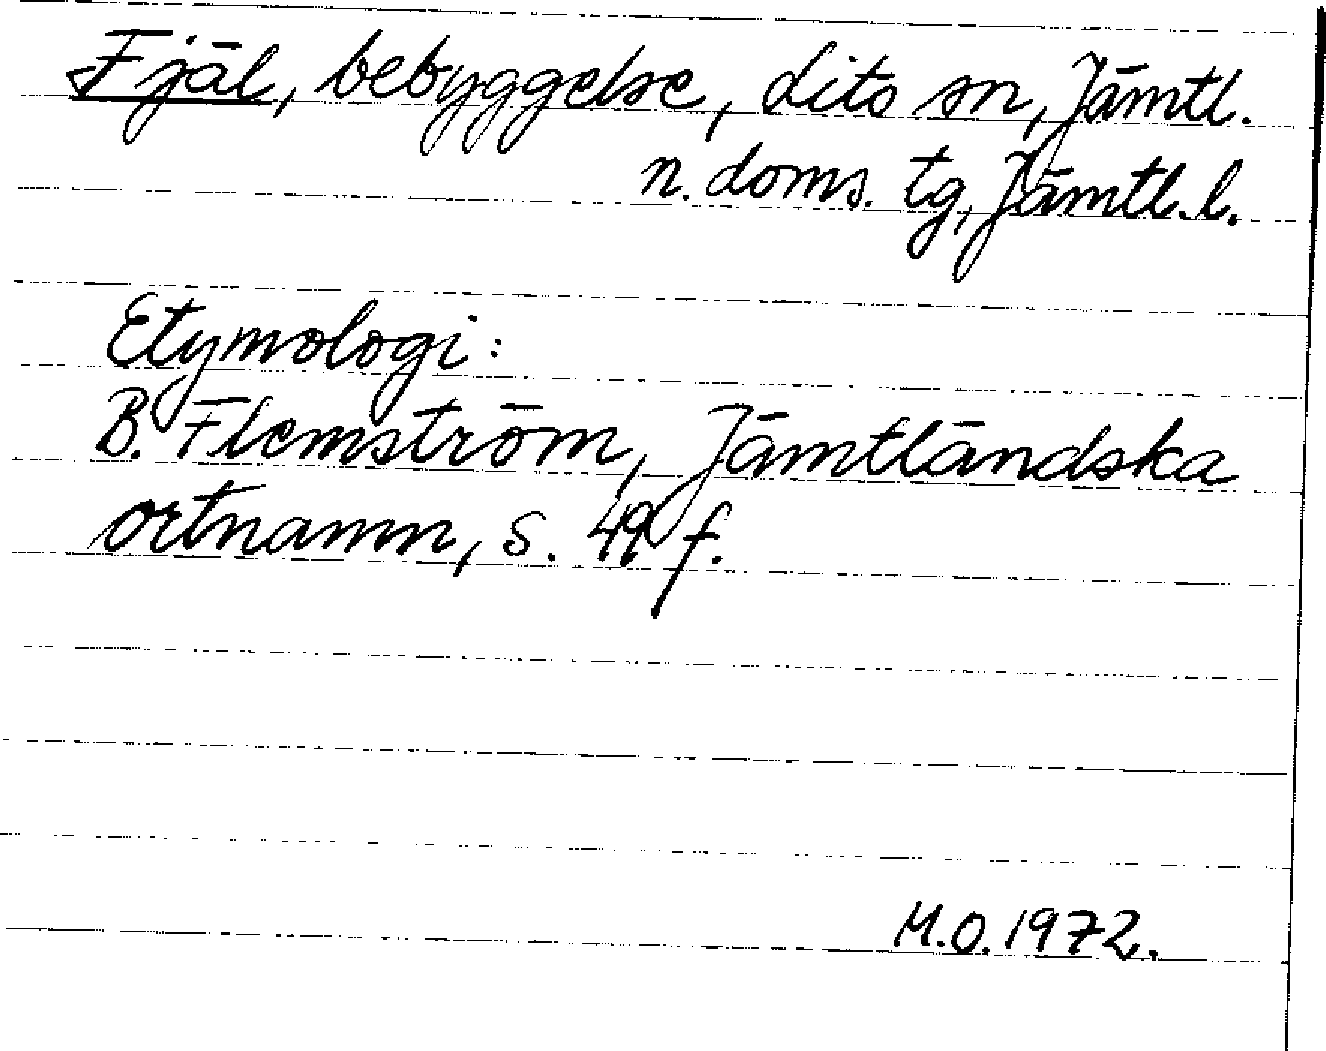 Fjäl, bebyggelse, Lits sn, Jämtl.
n. doms. tg, Jämtl. l.
Etymologi:
B. Flemström, Jämtländska
ortnamn, s. 49 f.
M.O. 1972.